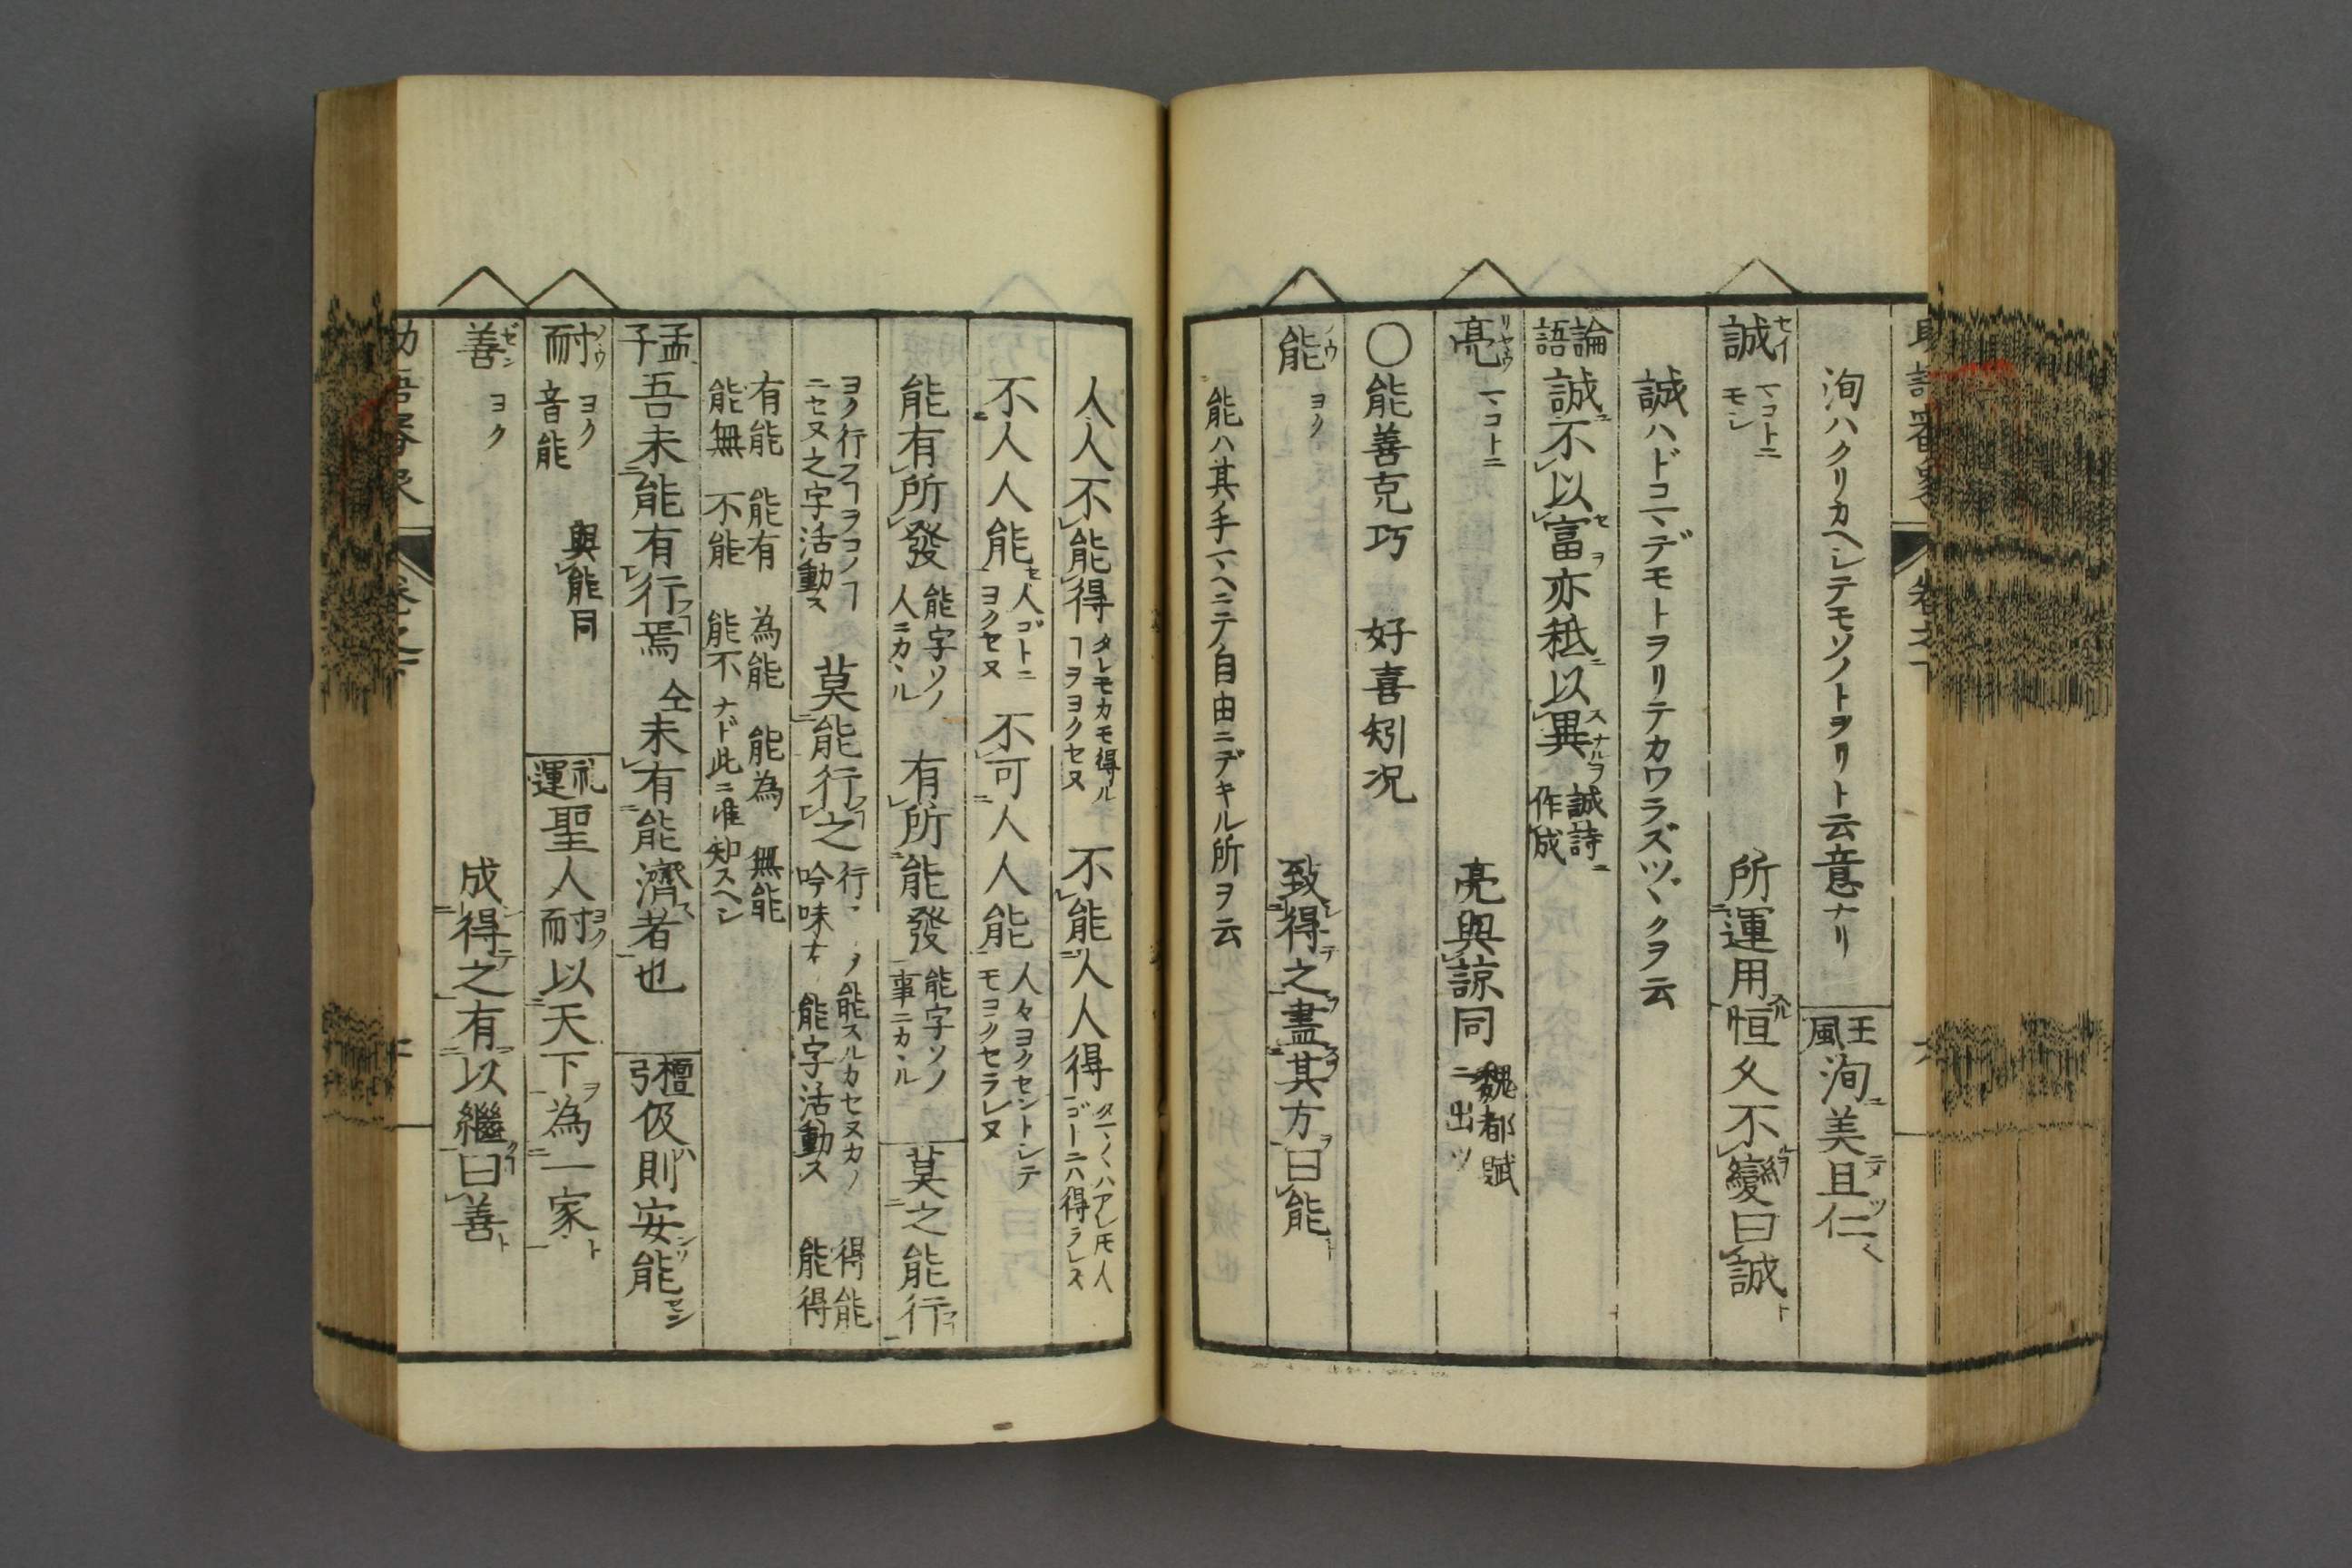 洵ハクリカヘシテモソノトヲリト云意ナリ 王風 洵美且仁
誠 セイ マコトニ モシ 所運用恒久不變曰誠
誠ハドコマデモトヲリテカワラズツヾクヲ云
論語 誠不以富亦秪以異 誠詩ニ作成
亮 リヤウ マコトニ 亮與諒同 魏都賦ニ出ツ
○能善克巧 好喜矧况
能 ノウ ヨク 致得之盡其方曰能
能ハ其ノ手マヘニテ自由ニデキル所ヲ云
人人不能得 タレモカモ得ルヿヲヨクセヌ 不能人人得
不人人能 人ゴトニヨクセヌ 不可人人能 人々ヨクセントシテモヨクセラレヌ
能有所發 能字ソノ人ニカヽル 有所能發 能字ソノ事ニカヽル 莫之能行
ヨク行フヿヲコノヿニセヌ之字活動ス 莫能行之 能字活動ス 得能 能得
有能 能有 為能 能為 無能 能無 不能 能不 ナド此ニ准知スヘシ
孟子 吾未能有行焉 仝 未有能濟者也 檀引 伋則安能
耐 ノウ ヨク 音能 與能同 礼運 聖人耐以天下為一家
善 ゼン ヨク 成得之有以繼曰善